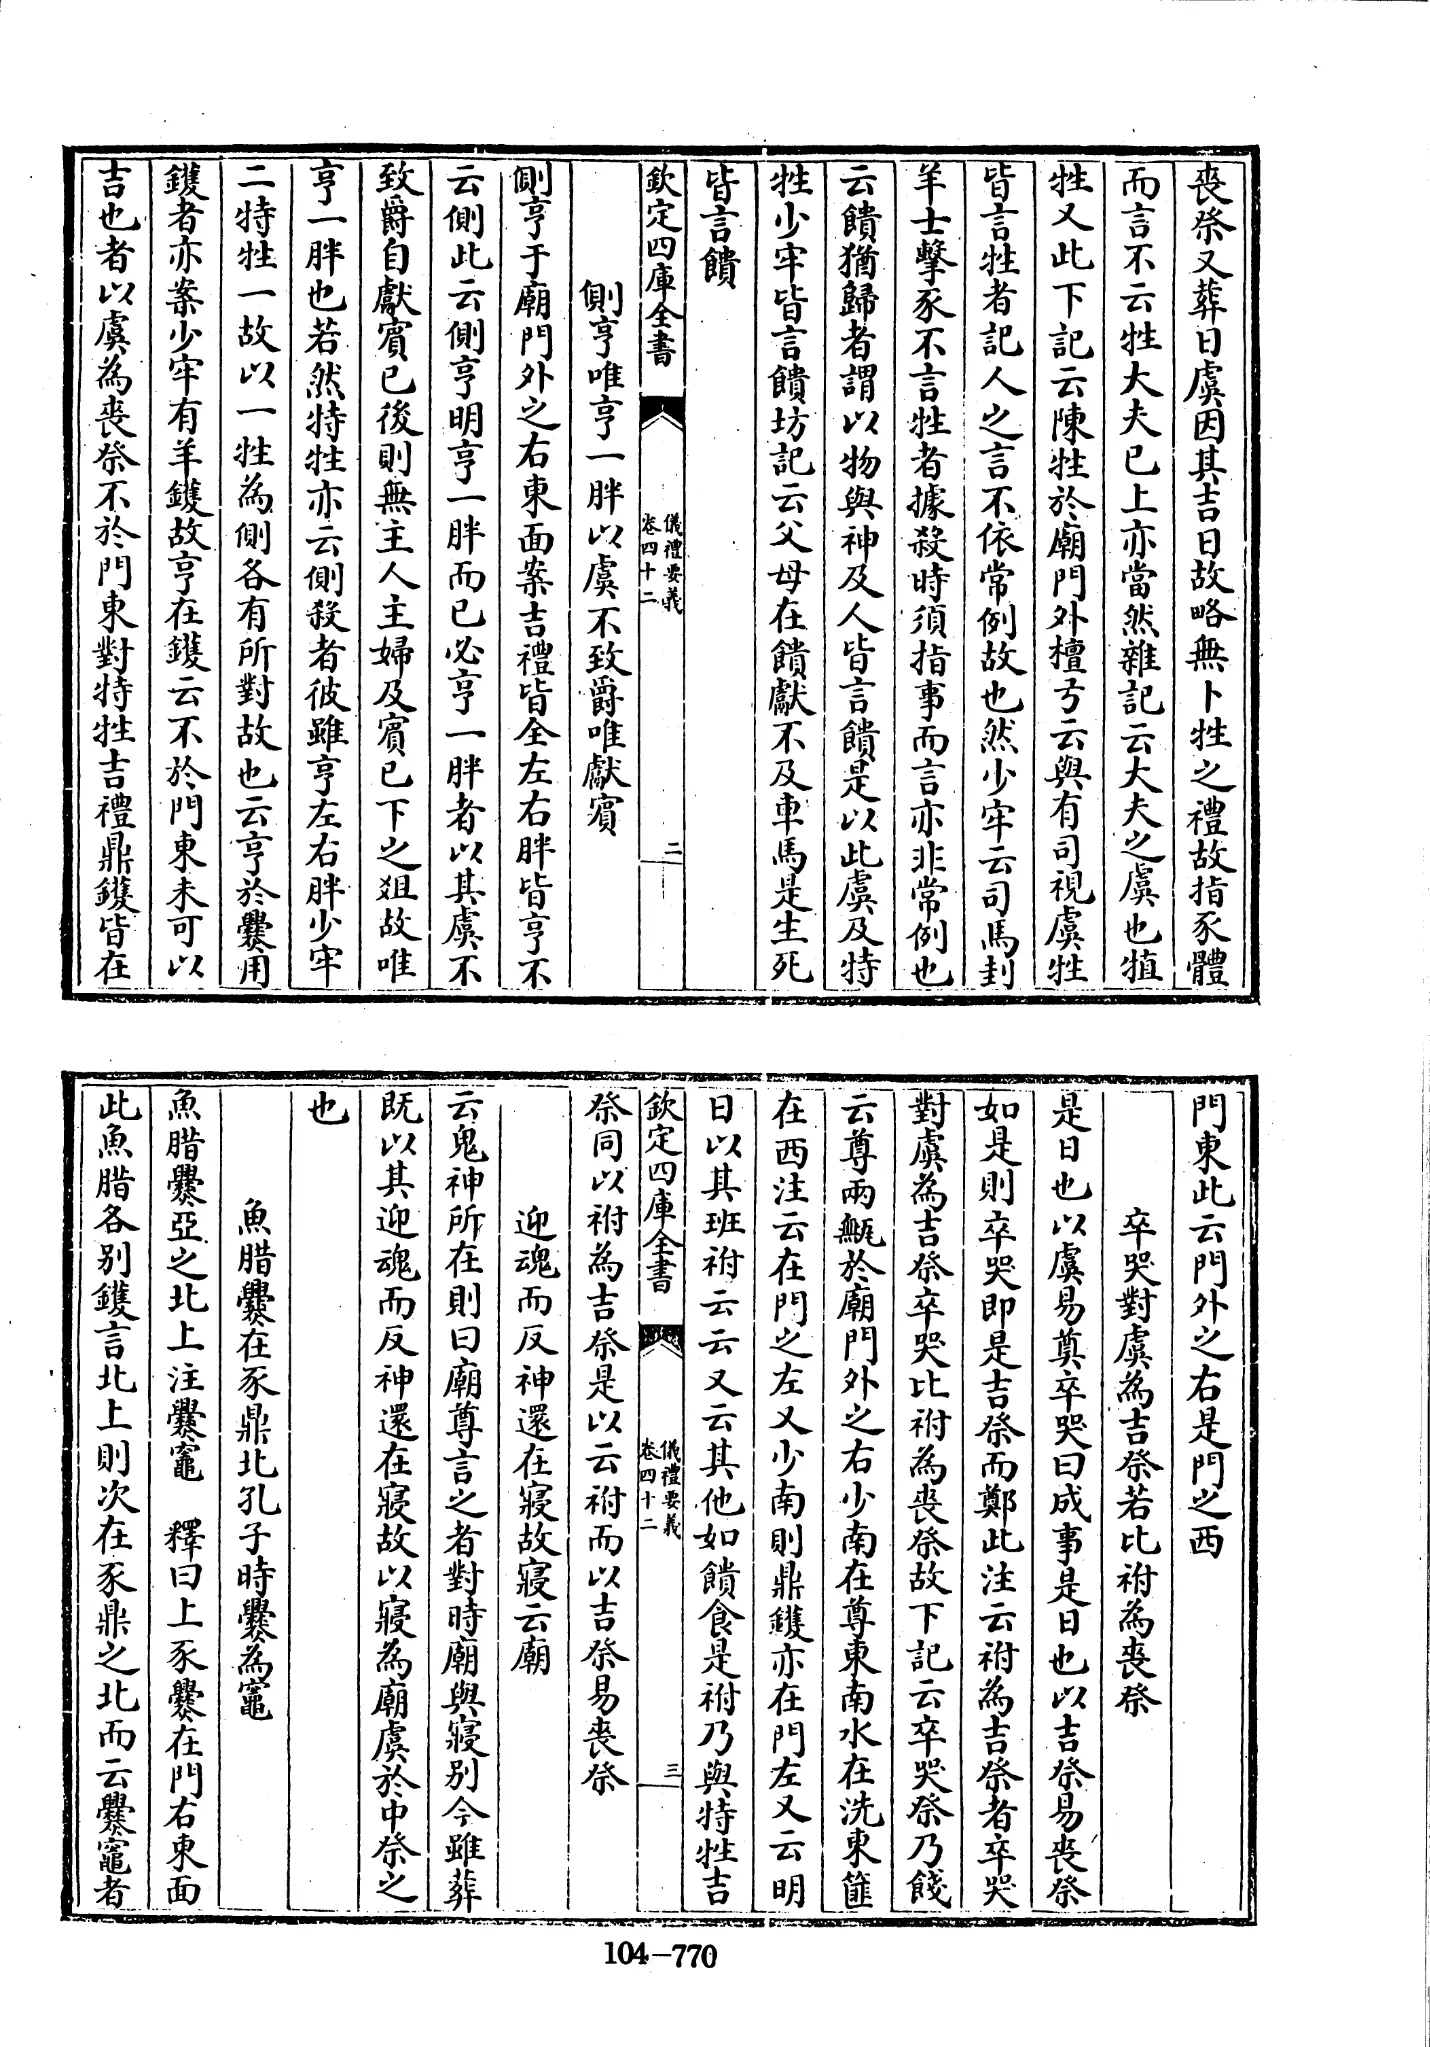 喪祭又葬日虞因其吉日故略無卜牲之禮故指豕體
而言不云牲大夫已上亦當然雜記云大夫之虞也犆
牲又此下記云陳牲於廟門外檀弓云與有司視虞牲
皆言牲者記人之言不依常例故也然少牢云司馬刲
羊士擊豕不言牲者據殺時須指事而言亦非常例也
云饋猶歸者謂以物與神及人皆言饋是以此虞及特
牲少牢皆言饋坊記云父母在饋獻不及車馬是生死
皆言饋
欽定四庫全書
儀禮要義
卷四十二
二
側亨唯亨一胖以虞不致爵唯獻賓
側亨于廟門外之右東面案吉禮皆全左右胖皆亨不
云側此云側亨明亨一胖而已必亨一胖者以其虞不
致爵自獻賓已後則無主人主婦及賓已下之俎故唯
亨一胖也若然特牲亦云側殺者彼雖亨左右胖少牢
二特牲一故以一牲為側各有所對故也云亨於爨用
鑊者亦案少牢有羊鑊故亨在鑊云不於門東未可以
吉也者以虞為喪祭不於門東對特牲吉禮鼎鑊皆在
門東此云門外之右是門之西
卒哭對虞為吉祭若比祔為喪祭
是日也以虞易奠卒哭曰成事是日也以吉祭易喪祭
如是則卒哭即是吉祭而鄭此注云祔為吉祭者卒哭
對虞為吉祭卒哭比祔為喪祭故下記云卒哭祭乃餞
云尊兩甒於廟門外之右少南在尊東南水在洗東篚
在西注云在門之左又少南則鼎鑊亦在門左又云明
日以其班祔云云又云其他如饋食是祔乃與特牲吉
欽定四庫全書
儀禮要義
卷四十二
三
祭同以祔為吉祭是以云祔而以吉祭易喪祭
迎魂而反神還在寢故寢云廟
云鬼神所在則曰廟尊言之者對時廟與寢別今雖葬
既以其迎魂而反神還在寢故以寢為廟虞於中祭之
也
魚腊爨在豕鼎北孔子時爨為竈
魚腊爨亞之北上注爨竈　釋曰上豕爨在門右東面
此魚腊各別鑊言北上則次在豕鼎之北而云爨竈者
104-770